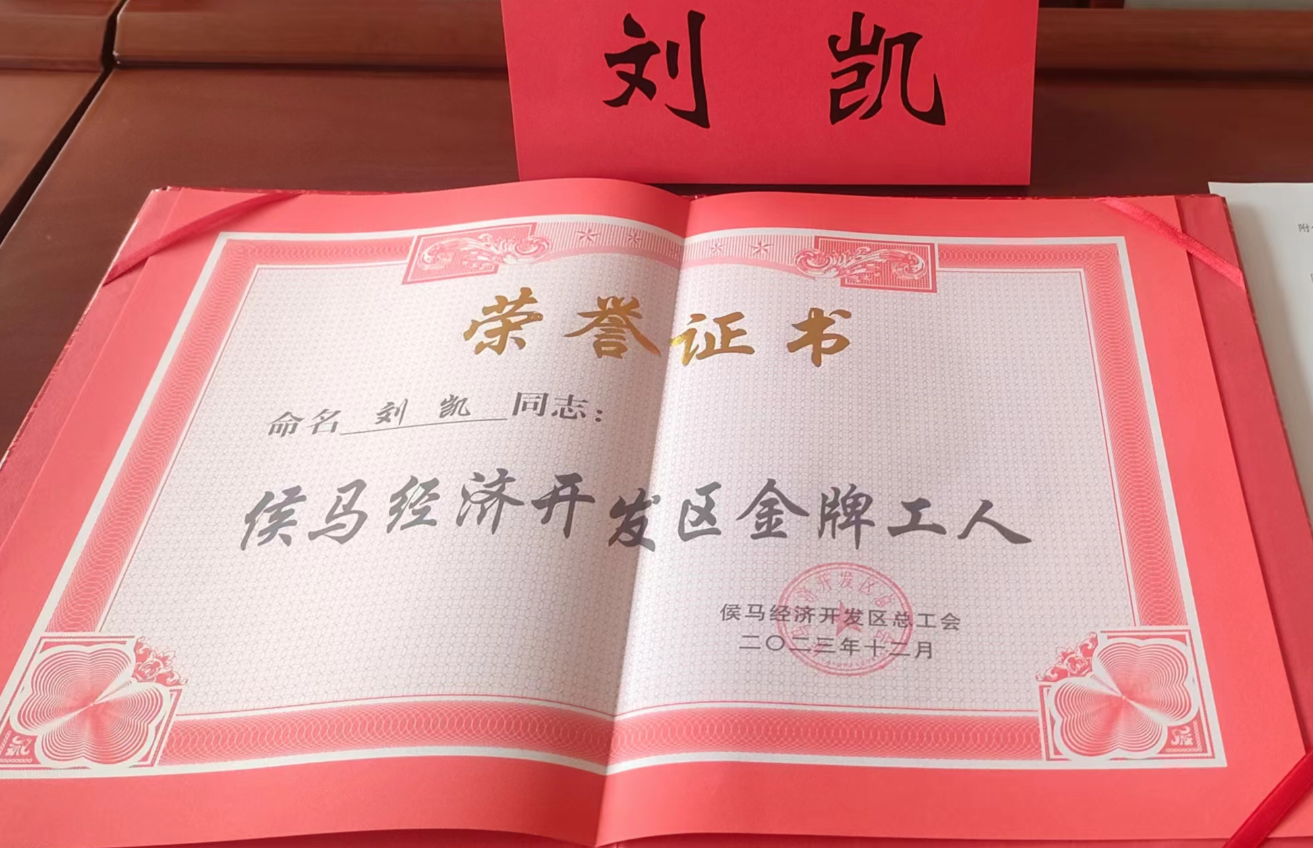 刘 凯
荣誉证书
命名 刘 凯 同志：
侯马经济开发区金牌工人
侯马经济开发区总工会
二〇二三年十二月
附